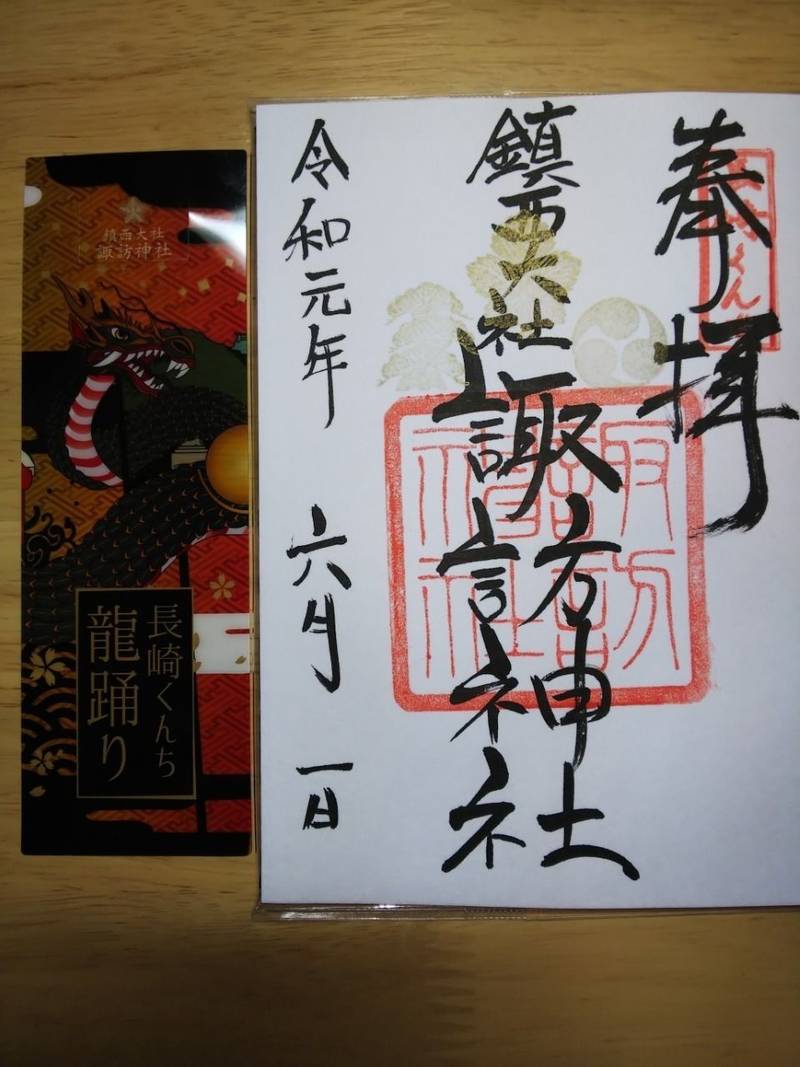 奉拝
鎮西大社
諏訪神社
令和元年 六月 一日
諏訪
神社
鎮西大社
諏訪神社
長崎くんち
龍踊り